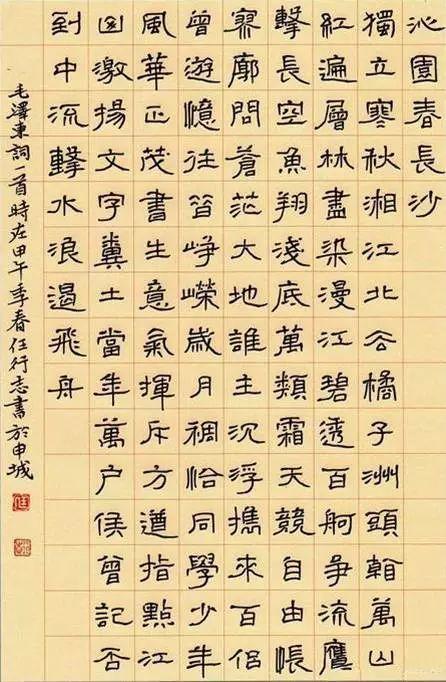 沁園春長沙
獨立寒秋湘江北去橘子洲頭看萬山
紅遍層林盡染漫江碧透百舸爭流鷹
擊長空魚翔淺底萬類霜天競自由悵
寥廓問蒼茫大地誰主沉浮攜來百侶
曾遊憶往昔崢嶸歲月稠恰同學少年
風華正茂書生意氣揮斥方遒指點江
山激揚文字糞土當年萬戶侯曾記否
到中流擊水浪遏飛舟
毛澤東詞一首時在甲午季春任行志書於申城